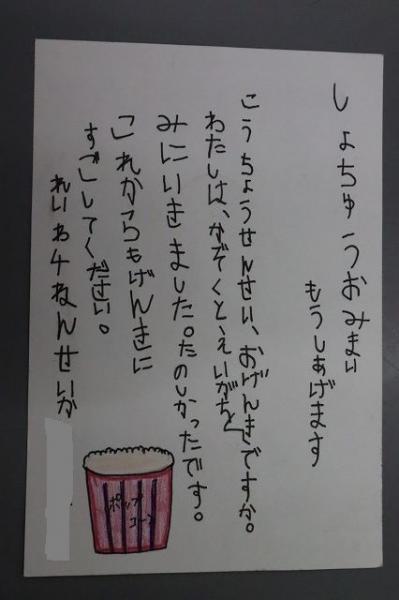 しょちゅうおみまい
もうしあげます
こうちょうせんせい、おげんきですか。
わたしは、かぞくと、えいがを
みにいきました。たのしかったです。
これからもげんきに
すごしてください。
れいわ4ねんせいか
ポップ
コーン